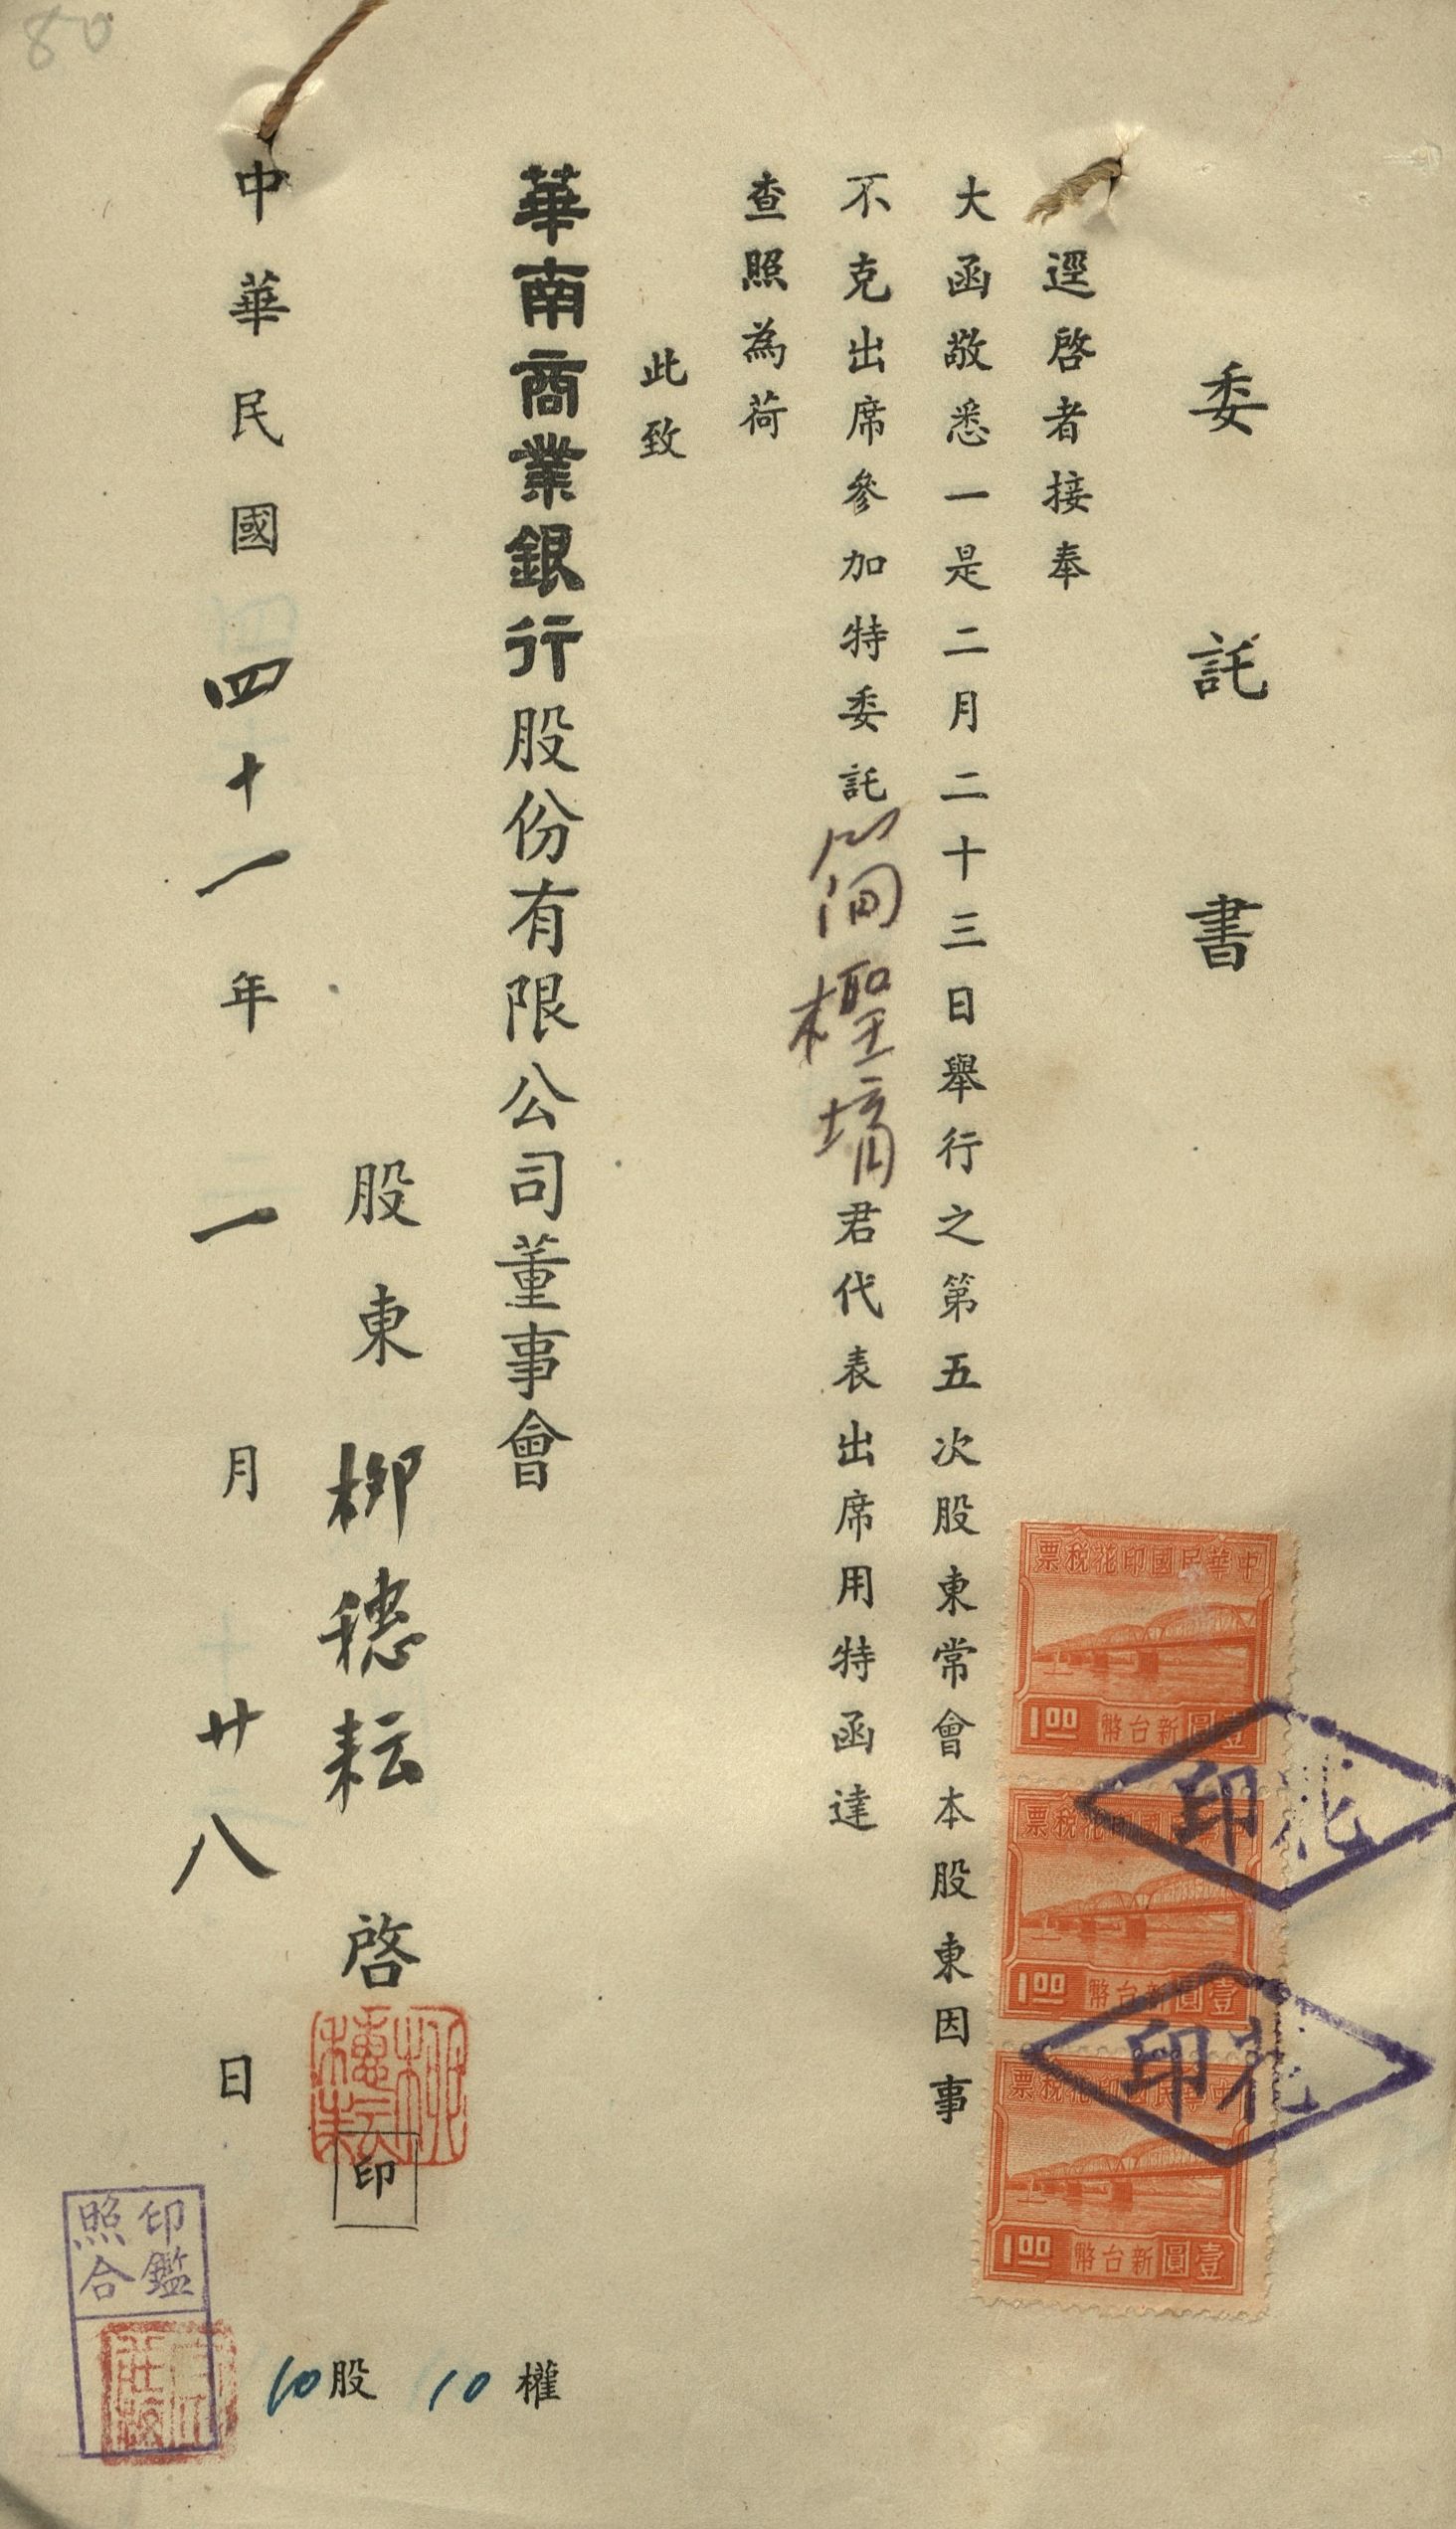 委託書
逕啓者接奉
大函敬悉一是二月二十三日舉行之第五次股東常會本股東因事
不克出席參加特委託簡檉堉君代表出席用特函達
查照為荷
此致
華南商業銀行股份有限公司董事會
股東 柳穗耘 啓
印
柳穗耘
中華民國四十一年一月廿八日
10股 10權
印鑑照合
80
中華民國印花稅票
1.00 壹圓新台幣
中華民國印花稅票
1.00 壹圓新台幣
中華民國印花稅票
1.00 壹圓新台幣
花印
花印